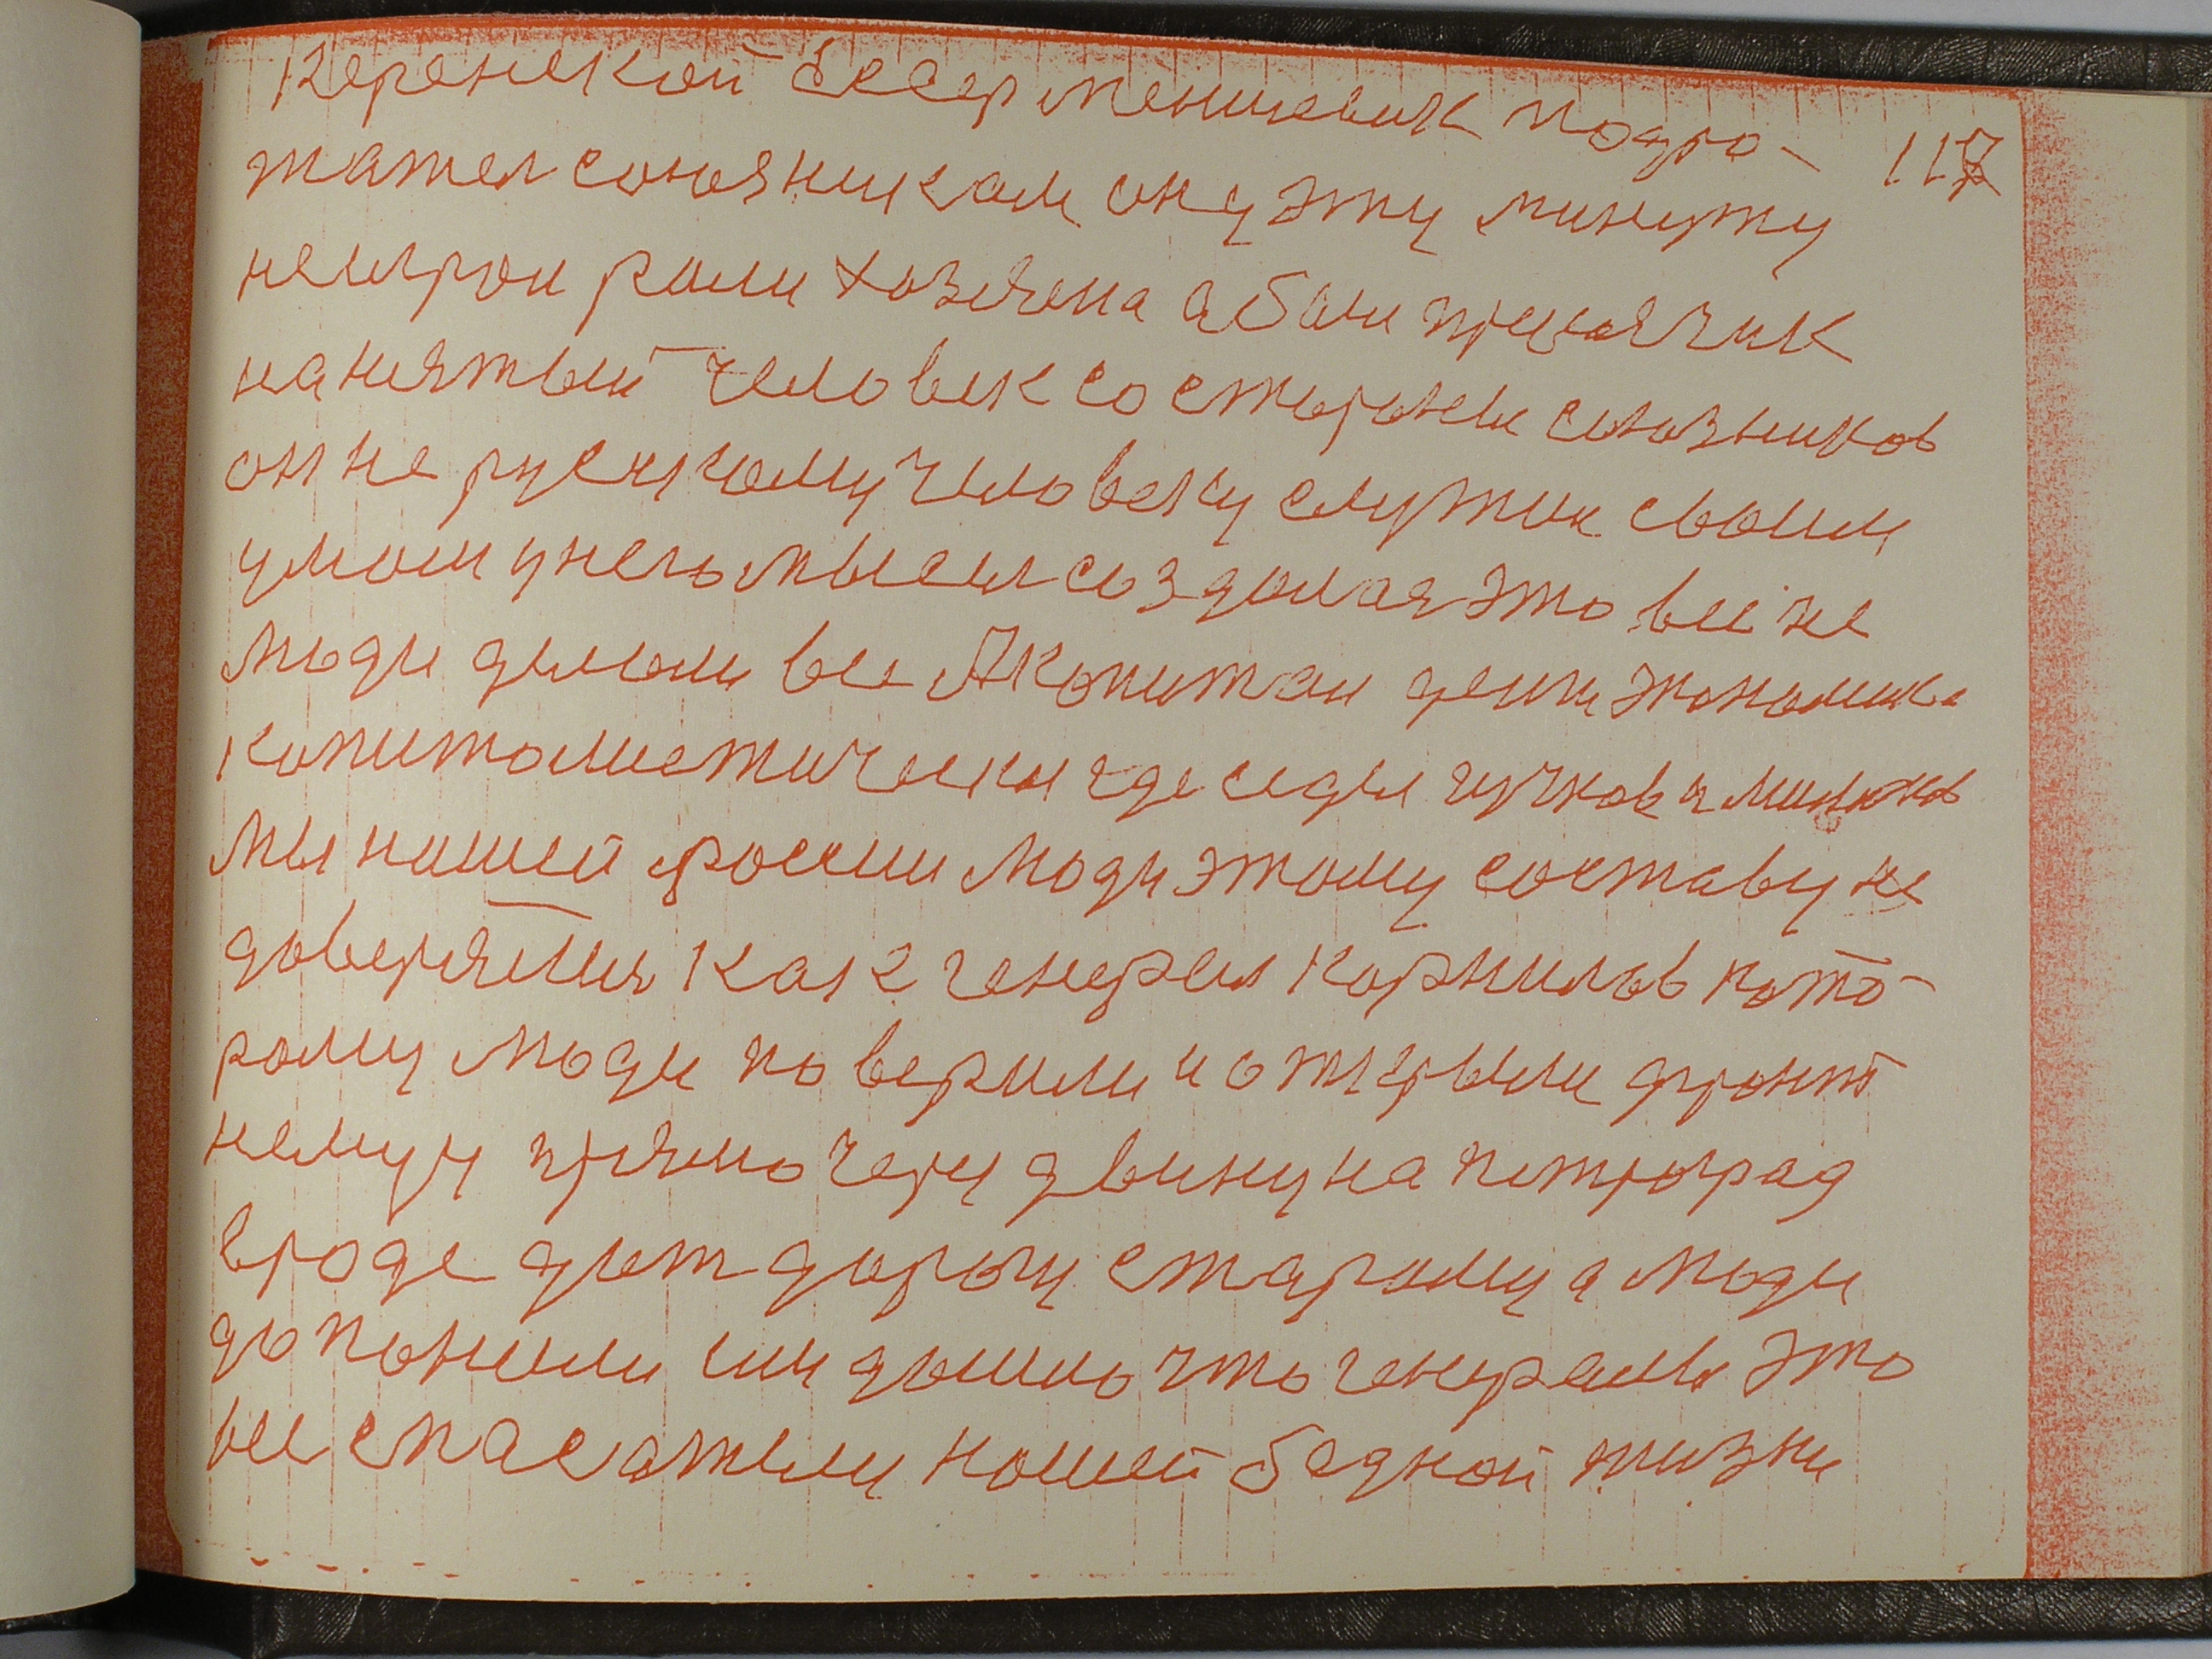 Керенской Эсеер меншевик подро- 117
жател союзникам он у эту минуту
не играи роли хозяена а был приказчик
нанятый человек со стороны союзников
он не русскому человеку служил своим
умом у него мысел создолая это все не
люди делали все А копитал дели экономика
копиталистически где сидел гучков и милюков
мы нашей росеии люди этому составу не
доверяття как генерал корнилов кото-
рому люди поверили и открыли фронт
нему и прямо через двину на петроград
вроде дат дорогу старому а люди
допоняли им дошло что генералы это
не спасатели нашей бедной жизни